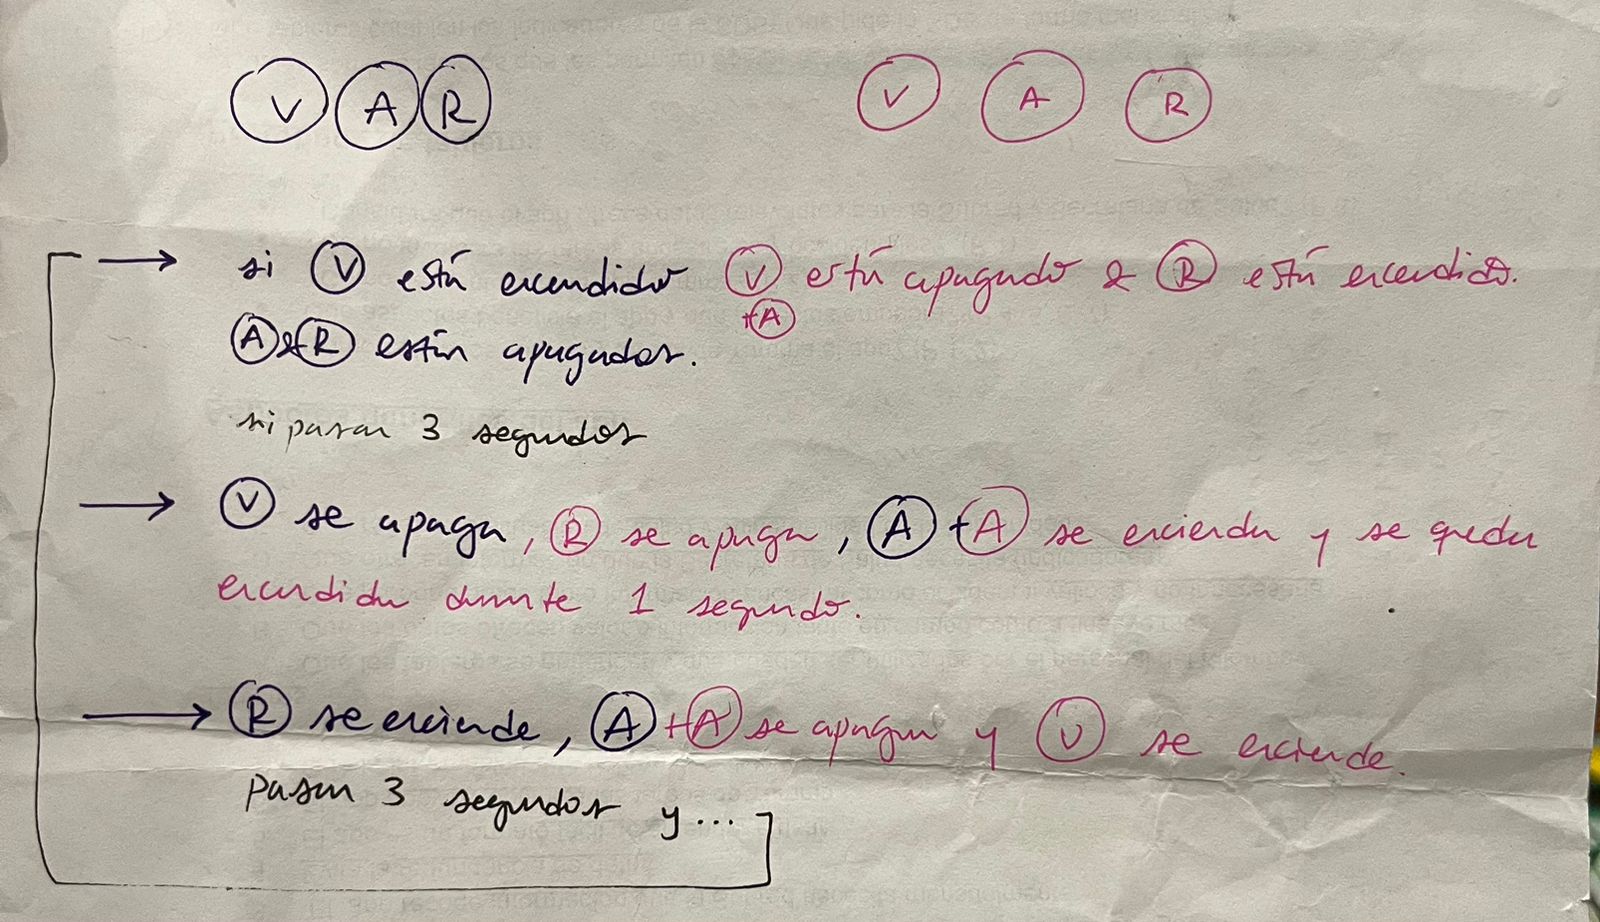 V A R V A R
si V está encendido V está apagado & R está encendido.
+A
A & R están apagados.
si pasan 3 segundos
V se apaga, R se apaga, A + A se encienda y se queda
encendida durante 1 segundo.
R se enciende, A + A se apagan y V se enciende.
Pasan 3 segundos y...